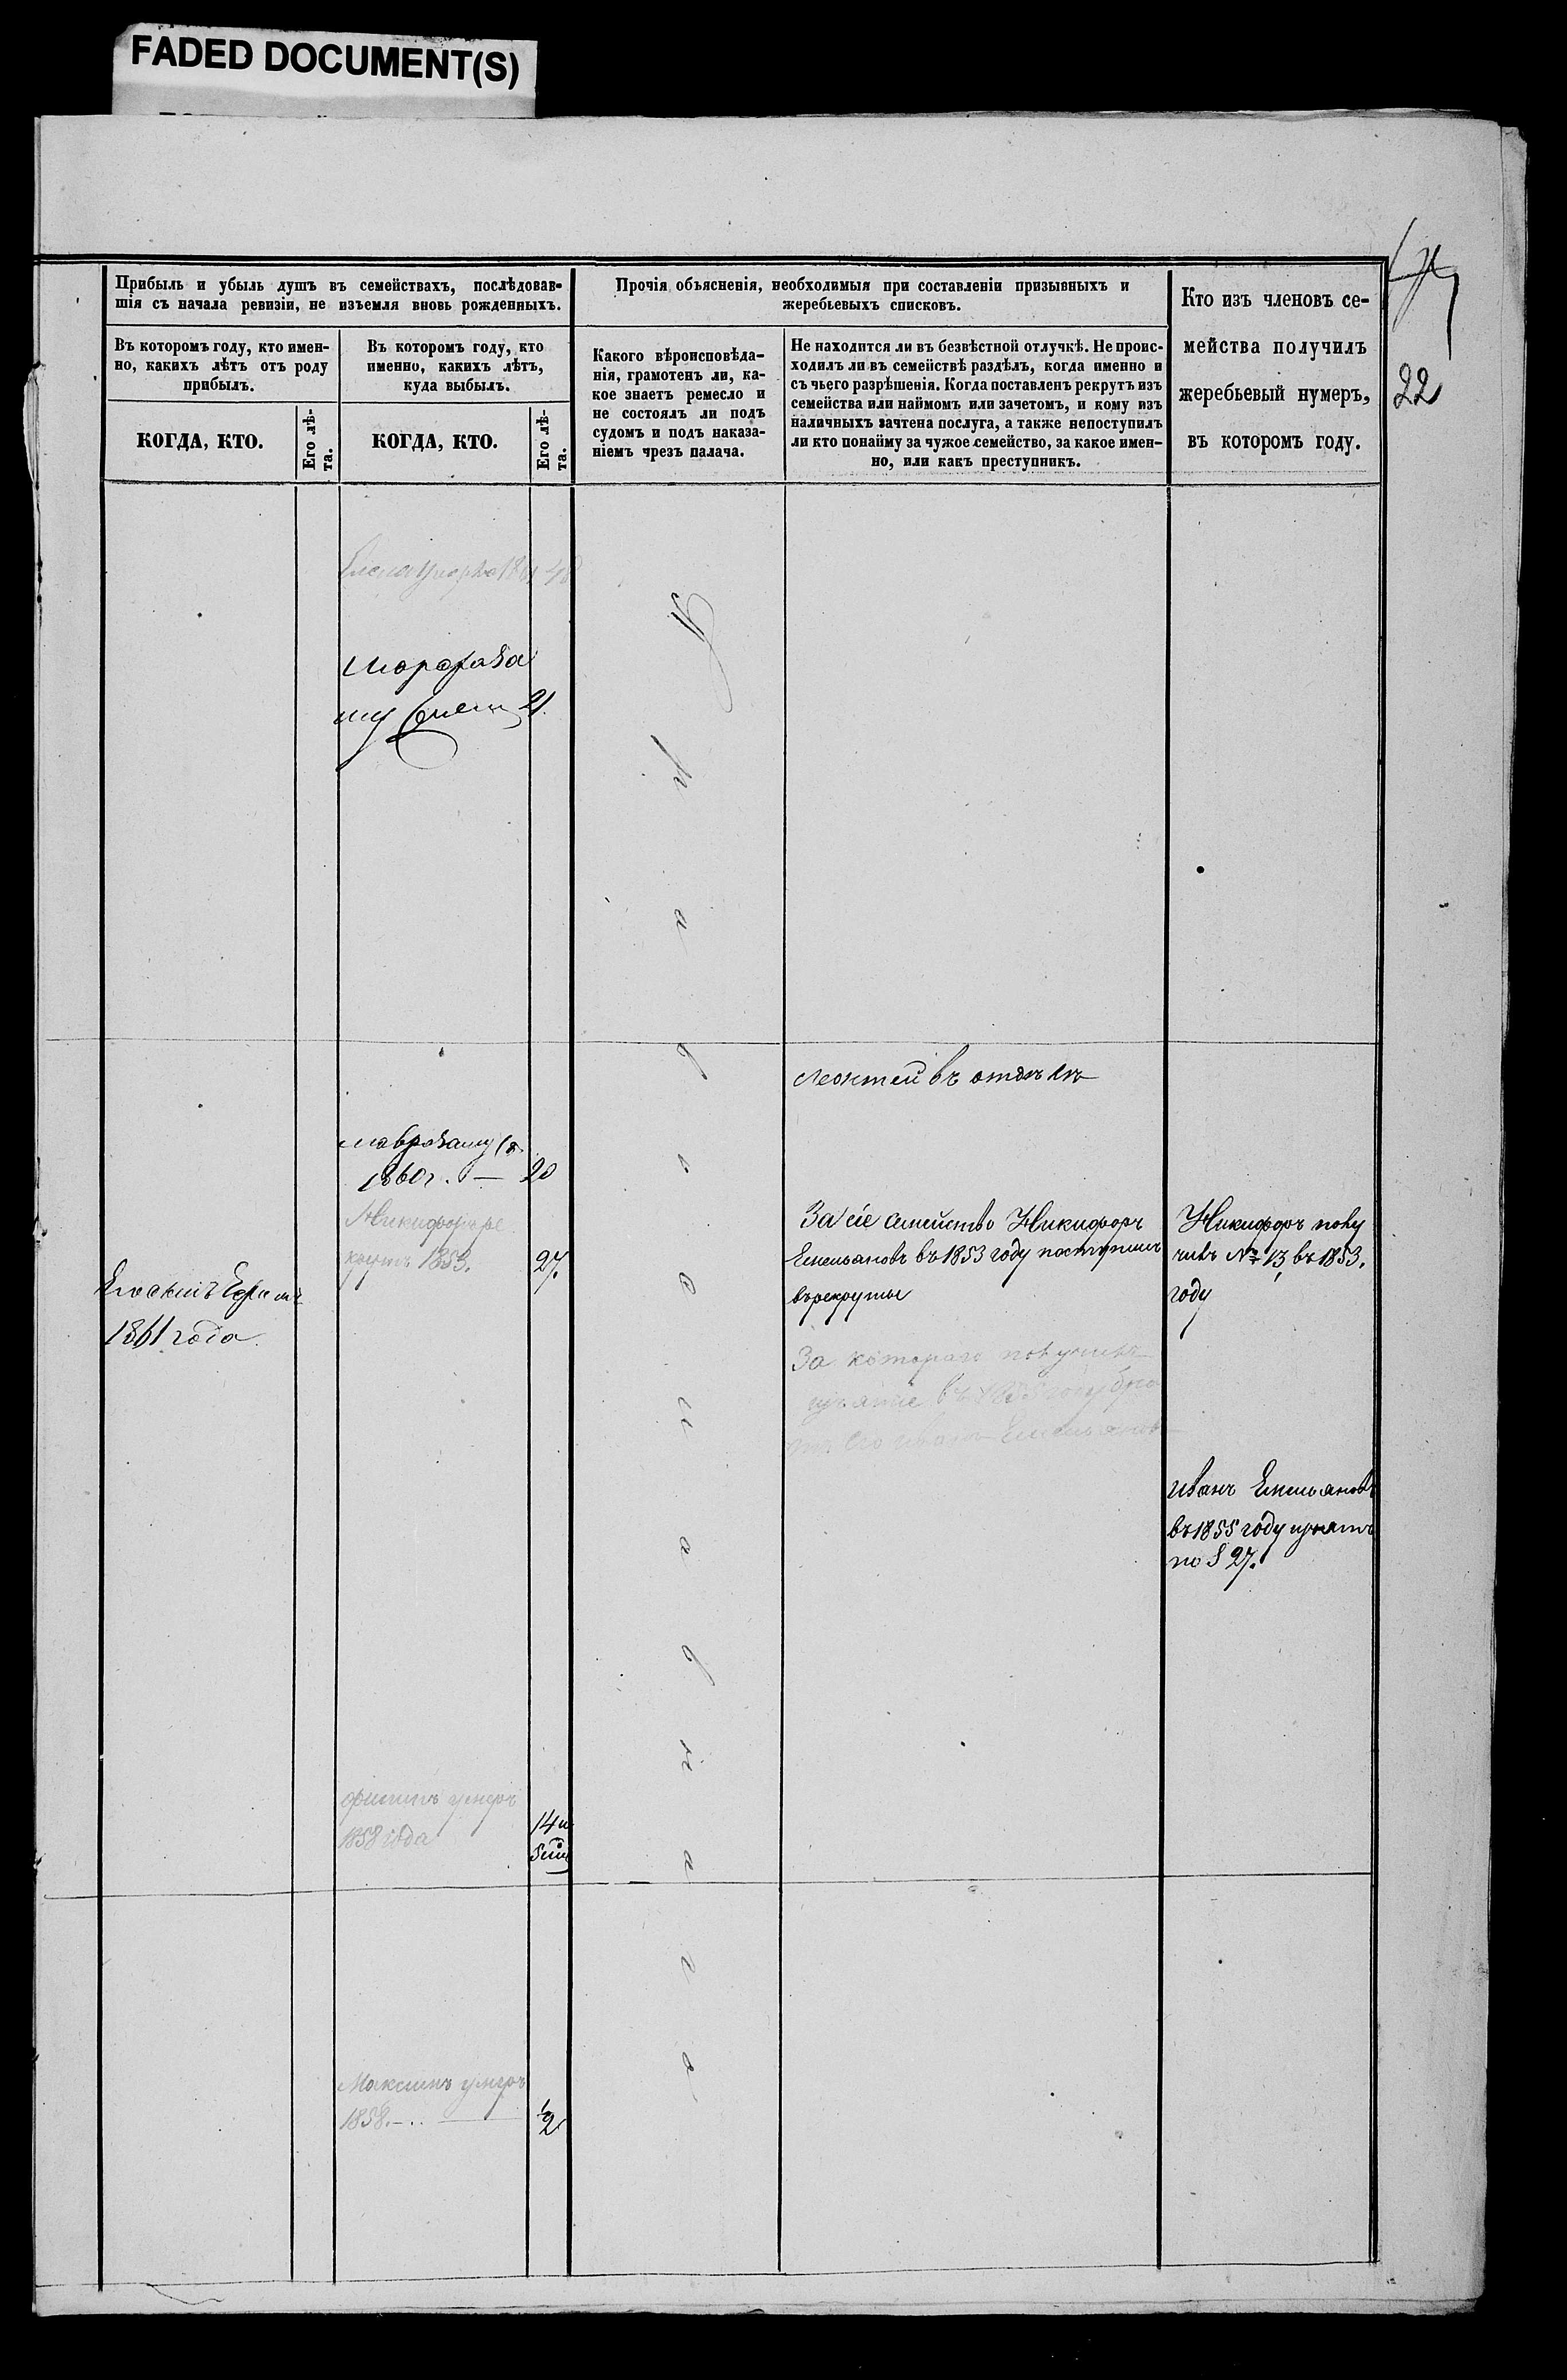 FADED DOCUMENT(S)
Прибыль и убыль душъ въ семействахъ, послѣдовав-
шія съ начала ревизіи, не изъемля вновь рожденныхъ.
Въ которомъ году, кто имен-
но, какихъ лѣтъ отъ роду
прибылъ.
КОГДА, КТО.
Его лѣ-
та.
Въ которомъ году, кто
именно, какихъ лѣтъ,
куда выбылъ.
КОГДА, КТО.
Его лѣ-
та.
Прочія объясненія, необходимыя при составленіи призывныхъ и
жеребьевыхъ списковъ.
Какого вѣроисповѣда-
нія, грамотенъ ли, ка-
кое знаетъ ремесло и
не состоялъ ли подъ
судомъ и подъ наказа-
ніемъ чрезъ палача.
Не находится ли въ безвѣстной отлучкѣ. Не проис-
ходилъ ли въ семействѣ раздѣлъ, когда именно и
съ чьего разрѣшенія. Когда поставленъ рекрутъ изъ
семейства или наймомъ или зачетомъ, и кому изъ
наличныхъ зачтена послуга, а также непоступилъ
ли кто понайму за чужое семейство, за какое имен-
но, или какъ преступникъ.
Кто изъ членовъ се-
мейства получилъ
жеребьевый нумеръ,
въ которомъ году.
22
21
Леонтей въ отдѣлѣ
1860г. — 20
Никифоръ ре
крутъ 1853. 27.
За сіе семейство Никифоръ
Емельяновъ въ 1853 году поступилъ
въ рекруты
Никифоръ полу
чилъ № 13 въ 1853.
году
1861 года
За котораго получилъ
изъятіе въ 1855 году бра
тъ его Иванъ Емельяновъ
Иванъ Емельяновъ
въ 1855 году изъятъ
по § 27.
Филипъ умеръ
1858 года
14
Максимъ умеръ
1858. — 1/2